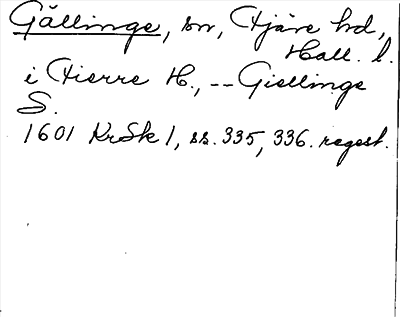 Gällinge, sn, Fjäre hd,
Hall. l.
i Fierre H., -- Giellinge
S.
1601 KrSk 1, ss. 335, 336. regest.